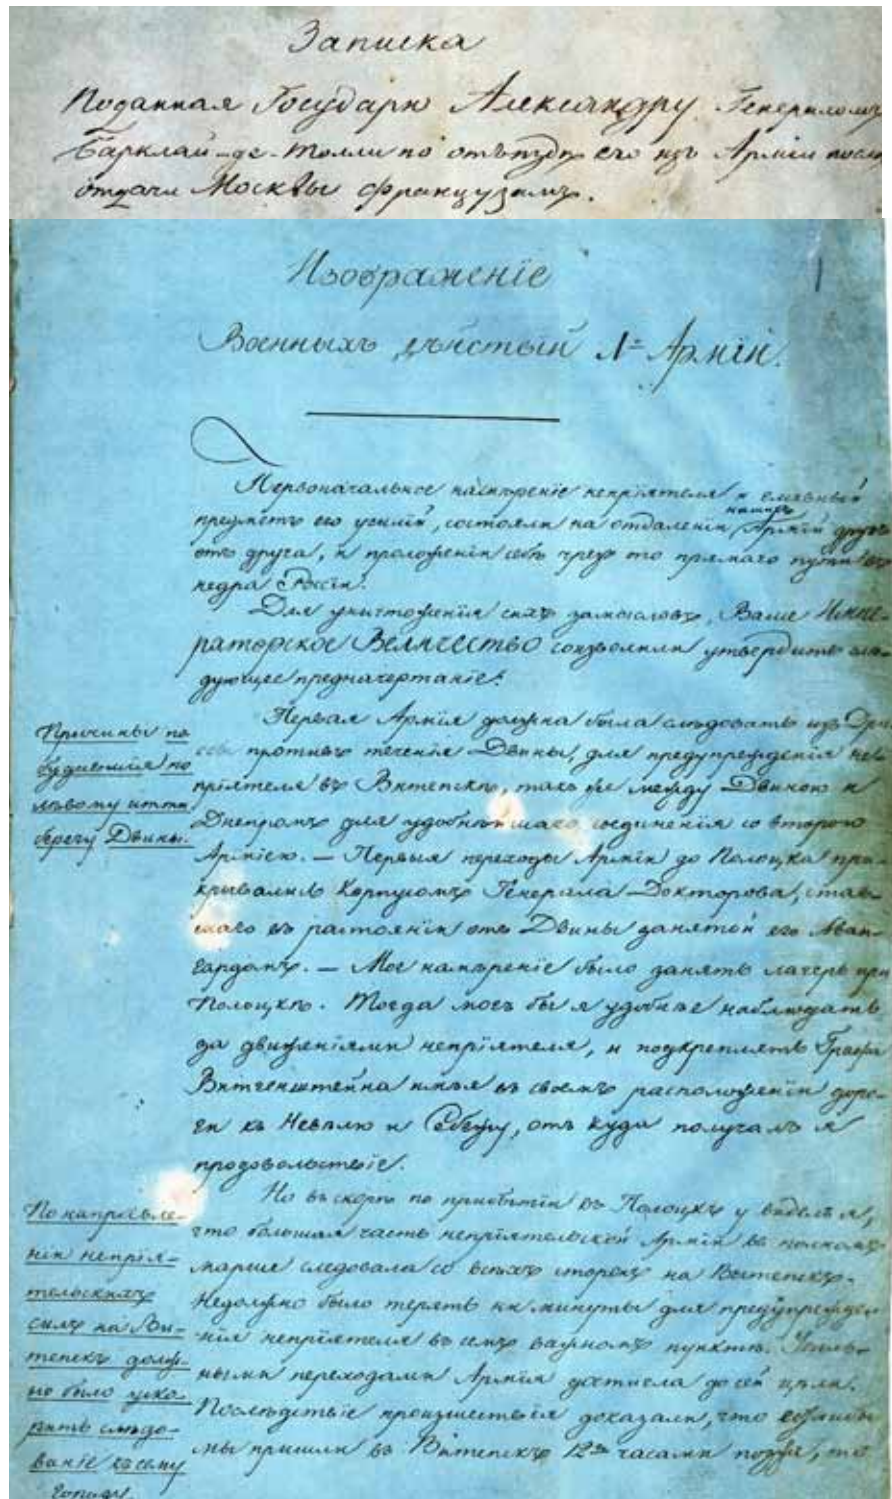 Записка
Поданная Государю Александру Генераломъ
Барклай-де-Толли по отъѣздѣ его изъ Арміи послѣ
отдачи Москвы французамъ.
Изображеніе
Военныхъ дѣйствій 1й Арміи.
Первоначальное намѣреніе непріятеля и главный
предметъ его усилій, состояли на отдаленіи нашихъ Армій другъ
отъ друга, и проложеніи себѣ чрезъ то прямаго пути въ
недра Россіи.
Для уничтоженія сихъ замысловъ, Ваше Импе-
раторское Величество соизволили утвердить слѣ-
дующее предначертаніе:
Первая Армія должна была слѣдовать изъ
противъ теченія Двины, для предупрежденія не-
пріятеля въ Витепскѣ, такъ же между Двиною и
Днепромъ для удобнѣйшаго соединенія со второю
Арміею. — Первыя переходы Арміи до Полоцка при-
крывались Корпусомъ Генерала Докторова, став-
шаго въ растояніи отъ Двины занятой его Аван-
гардомъ. — Мое намѣреніе было занять лагерь при
Полоцкѣ. Тогда могъ бы я удобнѣе наблюдать
за движеніями непріятеля, и подкреплять Графа
Витгенштейна имѣя въ своемъ расположеніи доро-
ги къ Невелю и Себежу, отъ куда получалъ я
продовольствіе.
Причины по
будившія по
лѣвому итти
берегу Двины.
Но въ скорѣ по прибытіи въ Полоцкъ увидѣлъ я,
что большая часть непріятельской Арміи въ полномъ
марше следовала со всѣхъ сторонъ на Витепскъ.
Недолжно было терять ни минуты для предупрежде-
нія непріятеля въ семъ важномъ пунктѣ. Усиль-
ными переходами Армія достигла до сей цели.
Послѣдствіе произшествія доказали, что еслибы
мы пришли въ Витепскъ 12ю часами позже, то
По направле-
ніи непрія-
тельскихъ
силъ на Ви-
тепскъ долж-
но было уско-
рить слѣдо-
ваніе къ сему
городу.